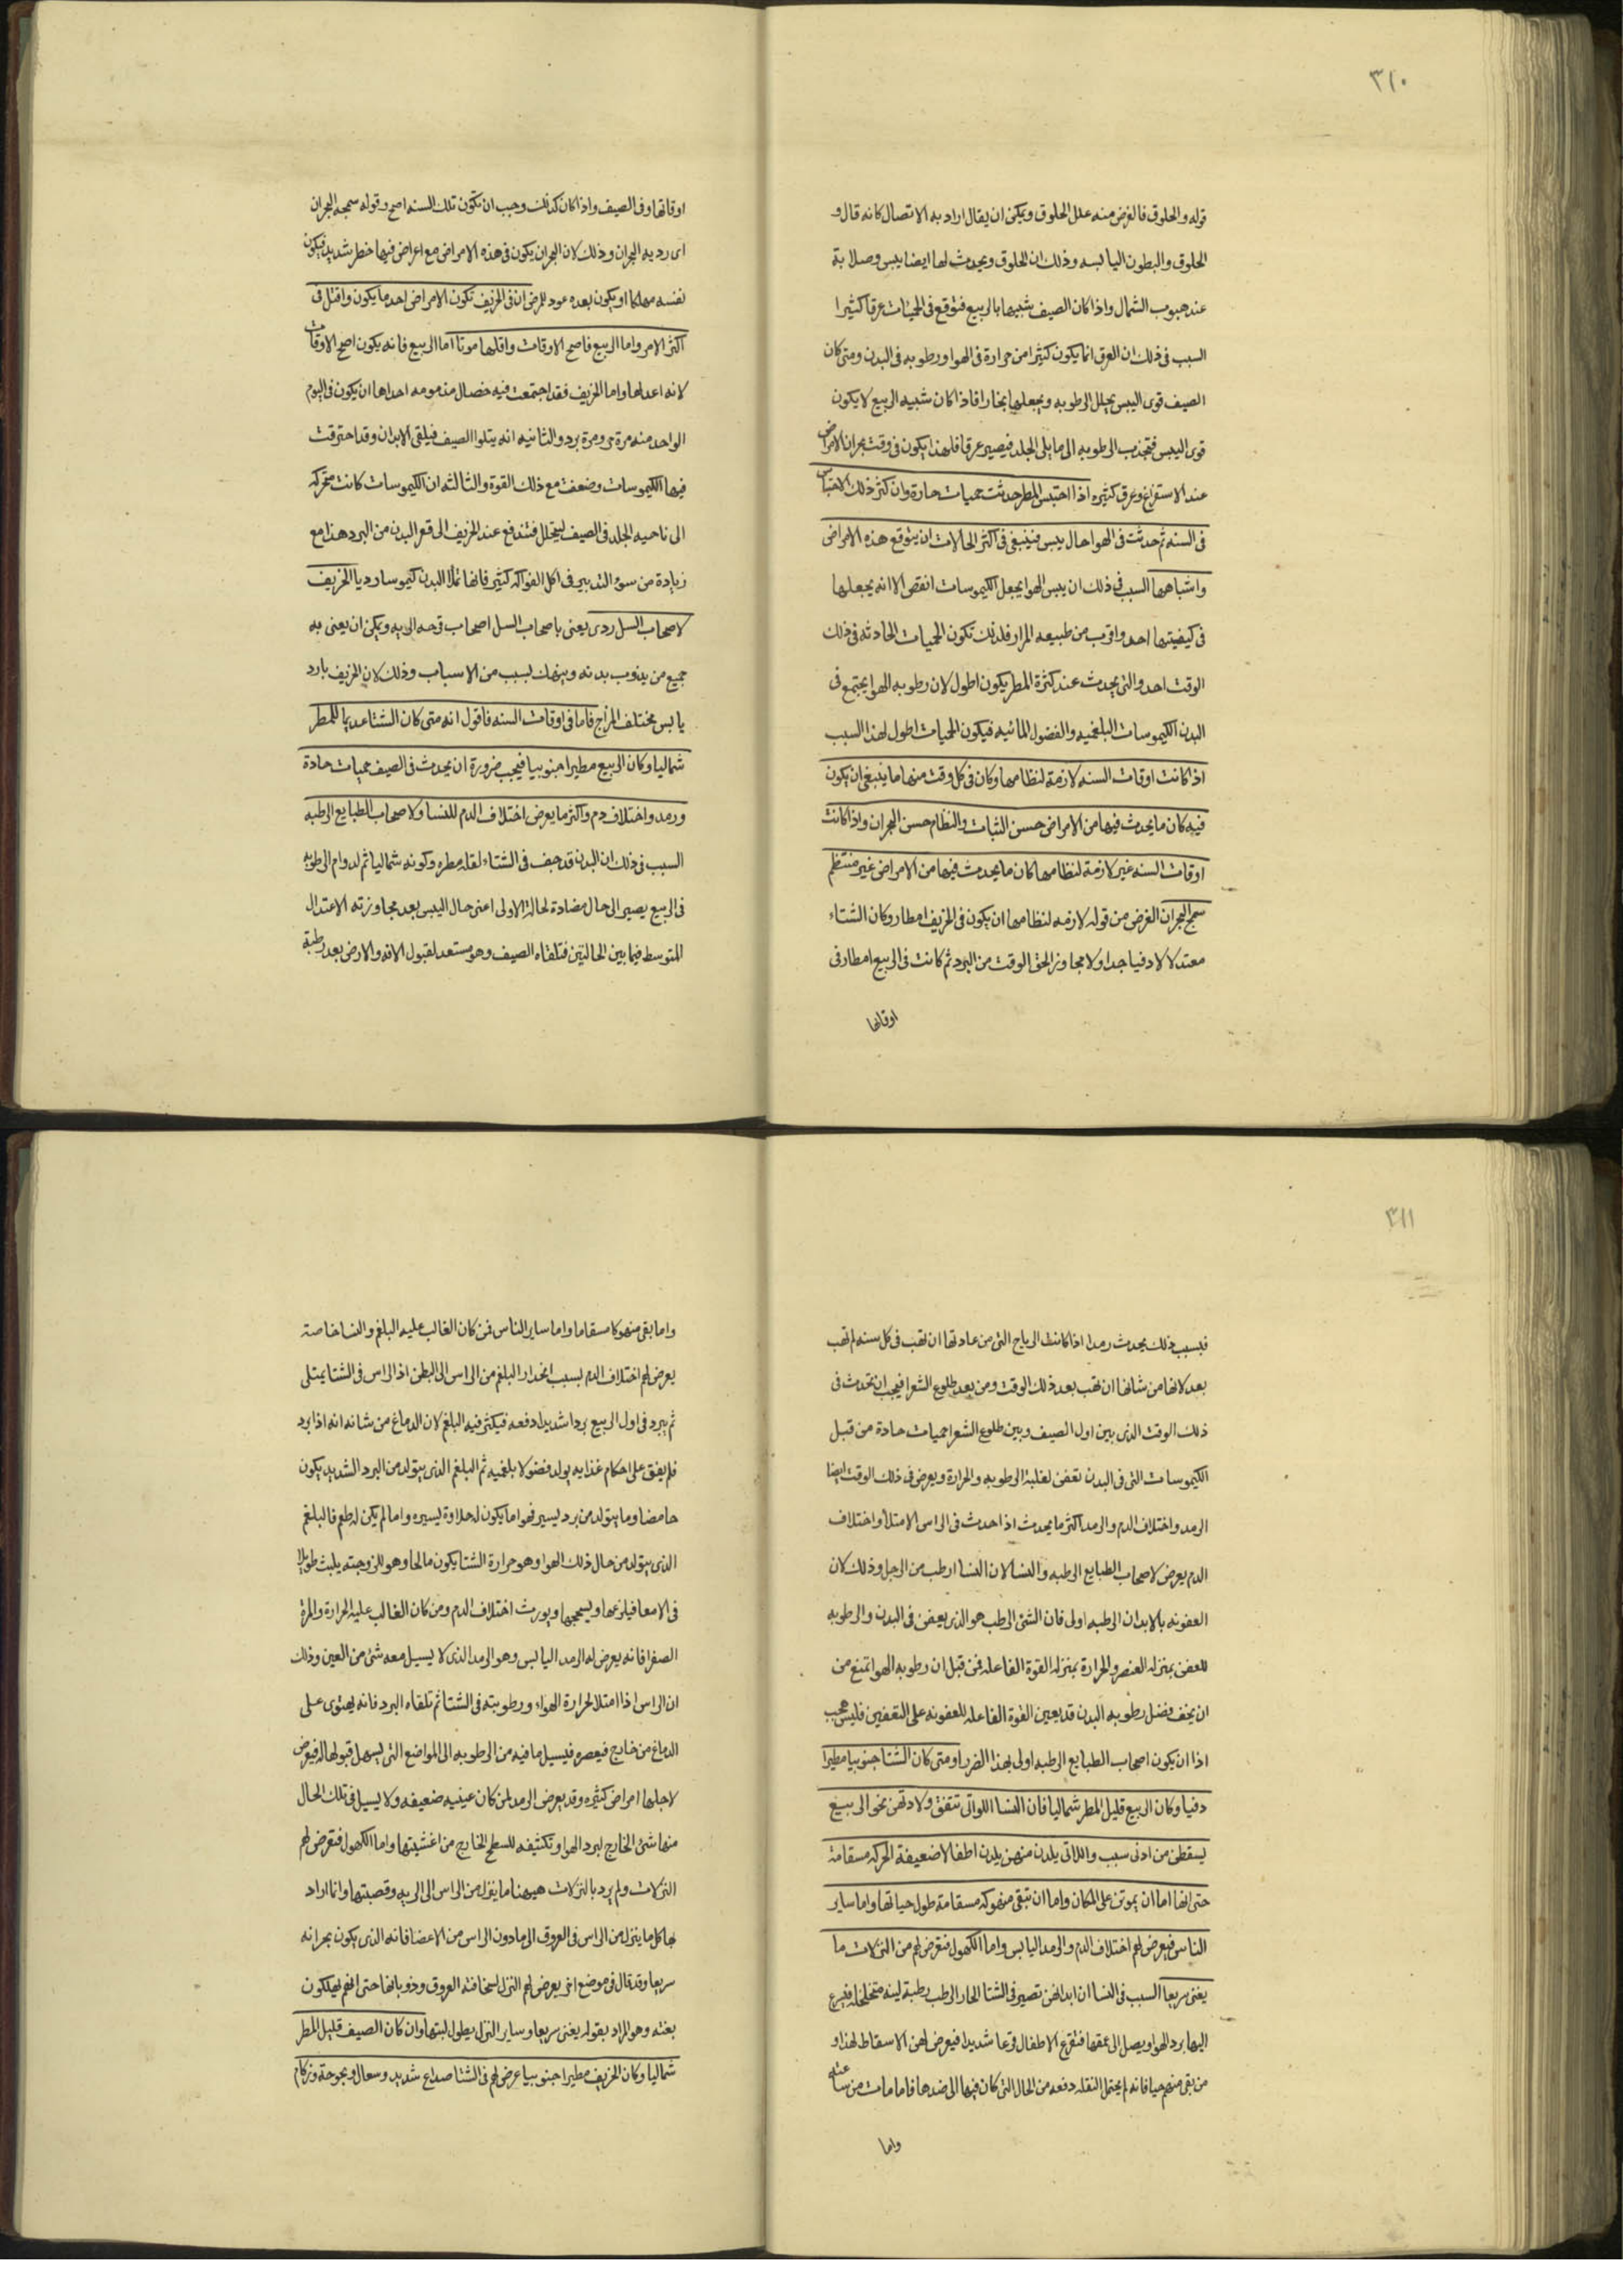 ٣١٠
قوله والحلوق فالغرض منه علل الحلوق ويمكن ان يقال اراد به الاتصال كانه قال و
الحلوق والبطون اليابسه وذلك ان الحلوق ويحدث لها ايضا يبس وصلابة
عند هبوب الشمال واذا كان الصيف شبيها بالربيع فتوقع فى الحميات عرقا كثيرا
السبب فى ذلك ان العرق انما يكون كثيرا من حرارة فى الهوا ورطوبه فى البدن ومتى كان
الصيف قوى اليبس يحلل الرطوبه ويجعلها بخارا فاذا كان شبيه الربيع لا يكون
قوى اليبس فتجذب الرطوبه الى ما يلى الجلد فيصير عرقا فلهذا يكون فى وقت بحران الامراض
عند الاستفراغ وعرق كثيره اذا احتبس المطر حدثت حميات حارة وان كثر ذلك الاحتباس
فى السنه ثم حدثت فى الهوا حال يبس فينبغى فى اكثر الحالات ان يتوقع هذه الامراض
واشباهها السبب فى ذلك ان يبس الهوا يجعل الكيموسات انقص الا انه يجعلها
فى كيفيتها احد واقرب من طبيعه المرار فلذلك تكون الحميات الحادثه فى ذلك
الوقت احد والتى يحدث عند كثرة المطر يكون اطول لان رطوبه الهوا يجتمع فى
البدن الكيموسات البلغميه والفضول المائيه فيكون الحميات اطول لهذا السبب
اذا كانت اوقات السنه لازمة لنظامها وكان فى كل وقت منها ما ينبغى ان يكون
فيه كان ما يحدث فيها من الامراض حسن الثبات والنظام حسن البحران واذا كانت
اوقات السنه غير لازمة لنظامها كان ما يحدث فيها من الامراض غير منتظم
سمج البحران الغرض من قوله لازمه لنظامها ان يكون فى الخريف امطار وكان الشتاء
معتدلا لا دفيا جدا ولا مجاوز الحق الوقت من البرد ثم كانت فى الربيع امطار فى
اوقاتها
اوقاتها وفى الصيف واذا كان كذلك وجب ان تكون تلك السنه اصح وقوله سمجه البحران
اى رديه البحران وذلك لان البحران يكون فى هذه الامراض مع اعراض فيها خطر شديد فيكون
نفسه مهلكا او يكون بعده عود للرض ان فى الخريف تكون الامراض احد ما يكون واقتل فى
اكثر الامر واما الربيع فاصح الاوقات واقلها موتا اما الربيع فانه يكون اصح الاوقات
لانه اعدلها واما الخريف فقد اجتمعت فيه خصال مذمومه احداها ان يكون فى اليوم
الواحد منه مرة حر ومرة برد والثانيه انه يتلوا الصيف فيلقى الابدان وقد احترقت
فيها الكيموسات وضعفت مع ذلك القوة والثالثه ان الكيموسات كانت متحركه
الى ناحيه الجلد فى الصيف ليتحلل فتندفع عند الخريف الى قعر البدن من البرد هذا مع
زيادة من سوء التدبير فى اكل الفواكه كثير فانها تملا البدن كيموسا رديا الخريف
لاصحاب السل ردى يعنى باصحاب السل اصحاب قرحه الريه ويمكن ان يعنى به
جميع من يذوب بدنه وينهك لسبب من الاسباب وذلك لان الخريف بارد
يابس مختلف المزاج فاما فى اوقات السنه فاقول انه متى كان الشتا عديما للمطر
شماليا وكان الربيع مطيرا جنوبيا فيجب ضرورة ان يحدث فى الصيف حميات حادة
ورمد واختلاف دم واكثر ما يعرض اختلاف الدم للنسا ولاصحاب الطبايع الرطبه
السبب فى ذلك ان البدن قد جف فى الشتاء لقله مطره وكونه شماليا ثم لدوام الرطوبه
فى الربيع يصير الى حال مضادة لحالة الاولى اعنى حال اليبس بعد مجاوزته الاعتدال
المتوسط فيما بين الحالتين فتلقاه الصيف وهو مستعد لقبول الافه والارض بعد رطبة
٣١١
فبسبب ذلك يحدث رمد اذا كانت الرياح التى من عادتها ان تهب فى كل سنه لم تهب
بعد لانها من شانها ان تهب بعد ذلك الوقت ومن بعد طلوع الشعرا فيجب ان تحدث فى
ذلك الوقت الذى بين اول الصيف وبين طلوع الشعرا حميات حادة من قبل
الكيموسات التى فى البدن تعفن لغلبة الرطوبه والحرارة ويعرض فى ذلك الوقت ايضا
الرمد واختلاف الدم والرمد اكثر ما يحدث اذا حدث فى الراس الامتلا واختلاف
الدم يعرض لاصحاب الطبايع الرطبه والنسا لان النسا ارطب من الرجل وذلك لان
العفونه بالابدان الرطبه اولى فان الشئ الرطب هو الذى يعفن فى البدن والرطوبه
للعفن بمنزله العنصر والحرارة بمنزله القوة الفاعله فمن قبل ان رطوبه الهوا تمنع من
ان يجف فضل رطوبه البدن قد يعين القوة الفاعله للعفونه على التعفين فليس عجب
اذا ان يكون اصحاب الطبايع الرطبه اولى بهذا الضرر او متى كان الشتا جنوبيا مطيرا
دفيا وكان الربيع قليل المطر شماليا فان النسا اللواتى تتفق ولادتهن نحو الربيع
يسقطن من ادنى سبب واللاتى يلدن منهن يلدن اطفالا ضعيفة الحركه مسقامة
حتى انها اما ان يموتن على المكان واما ان تبقى منهوكه مسقامة طول حياتها واما ساير
الناس فيعرض لهم اختلاف الدم والرمد اليابس واما الكهول فتعرض لهم من النزلات ما
يغنى سريعا السبب فى النسا ان ابدانهن تصير فى الشتا الحار الرطب رطبة لينه متخلخله فيسرع
اليها برد الهوا ويصل الى عمقها فتقرع الاطفال قرعا شديدا فيعرض لهن الاسقاط لهذا و
من بقى منهم حيا فانه لم يحتمل النقله دفعه من الحال التى كان فيها الى ضدها فاما مات من ساعته
واما
واما بقى منهوكا مسقاما واما ساير الناس فمن كان الغالب عليه البلغم والنسا خاصة
يعرض لهم اختلاف الدم بسبب انحدار البلغم من الراس الى البطن اذ الراس فى الشتا يمتلى
ثم يبرد فى اول الربيع بردا شديدا دفعه فيكثر فيه البلغم لان الدماغ من شانه انه اذا برد
فلم يفق على احكام غذايه يولد فضولا بلغميه ثم البلغم الذى يتولد من البرد الشديد يكون
حامضا وما يتولد من برد يسير فهو اما يكون له حلاوة يسيره واما لم يكن له طعم فالبلغم
الذى يتولد من حال ذلك الهوا وهو حرارة الشتا يكون مالحا وهو للزوجته يلبث طويلا
فى الامعا فيلزمها ويسحجها ويورث اختلاف الدم ومن كان الغالب عليه الحرارة والمرة
الصفرا فانه يعرض له الرمد اليابس وهو الرمد الذى لا يسيل معه شئ من العين وذلك
ان الراس اذا امتلا لحرارة الهواء ورطوبته فى الشتا ثم تلقاه البرد فانه يحتوى على
الدماغ من خارج فيعصره فيسيل ما فيه من الرطوبه الى المواضع التى يسهل قبولها له فيعرض
لاجلها امراض كثيره وقد يعرض الرمد لمن كان عينيه ضعيفه ولا يسيل فى تلك الحال
منها شئ الخارج لبرد الهوا وتكثيفه للسطح الخارج من اغشيتها واما الكهول فتعرض لهم
النزلات ولم يرد بالنزلات هيهنا ما ينزل من الراس الى الريه وقصبتها وانما اراد
بها كل ما ينزل من الراس فى العروق الى ما دون الراس من الاعضا فانه الذى يكون بحرانه
سريعا وقد قال فى موضع اخر يعرض لهم النزل لسخافة العروق وذوبانها حتى انهم يهلكون
بغته وهو المراد بقوله يغنى سريعا وساير النزل يطول لبثها وان كان الصيف قليل المطر
شماليا وكان الخريف مطيرا جنوبيا عرض لهم فى الشتا صداع شديد وسعال وبحوحة وزكام